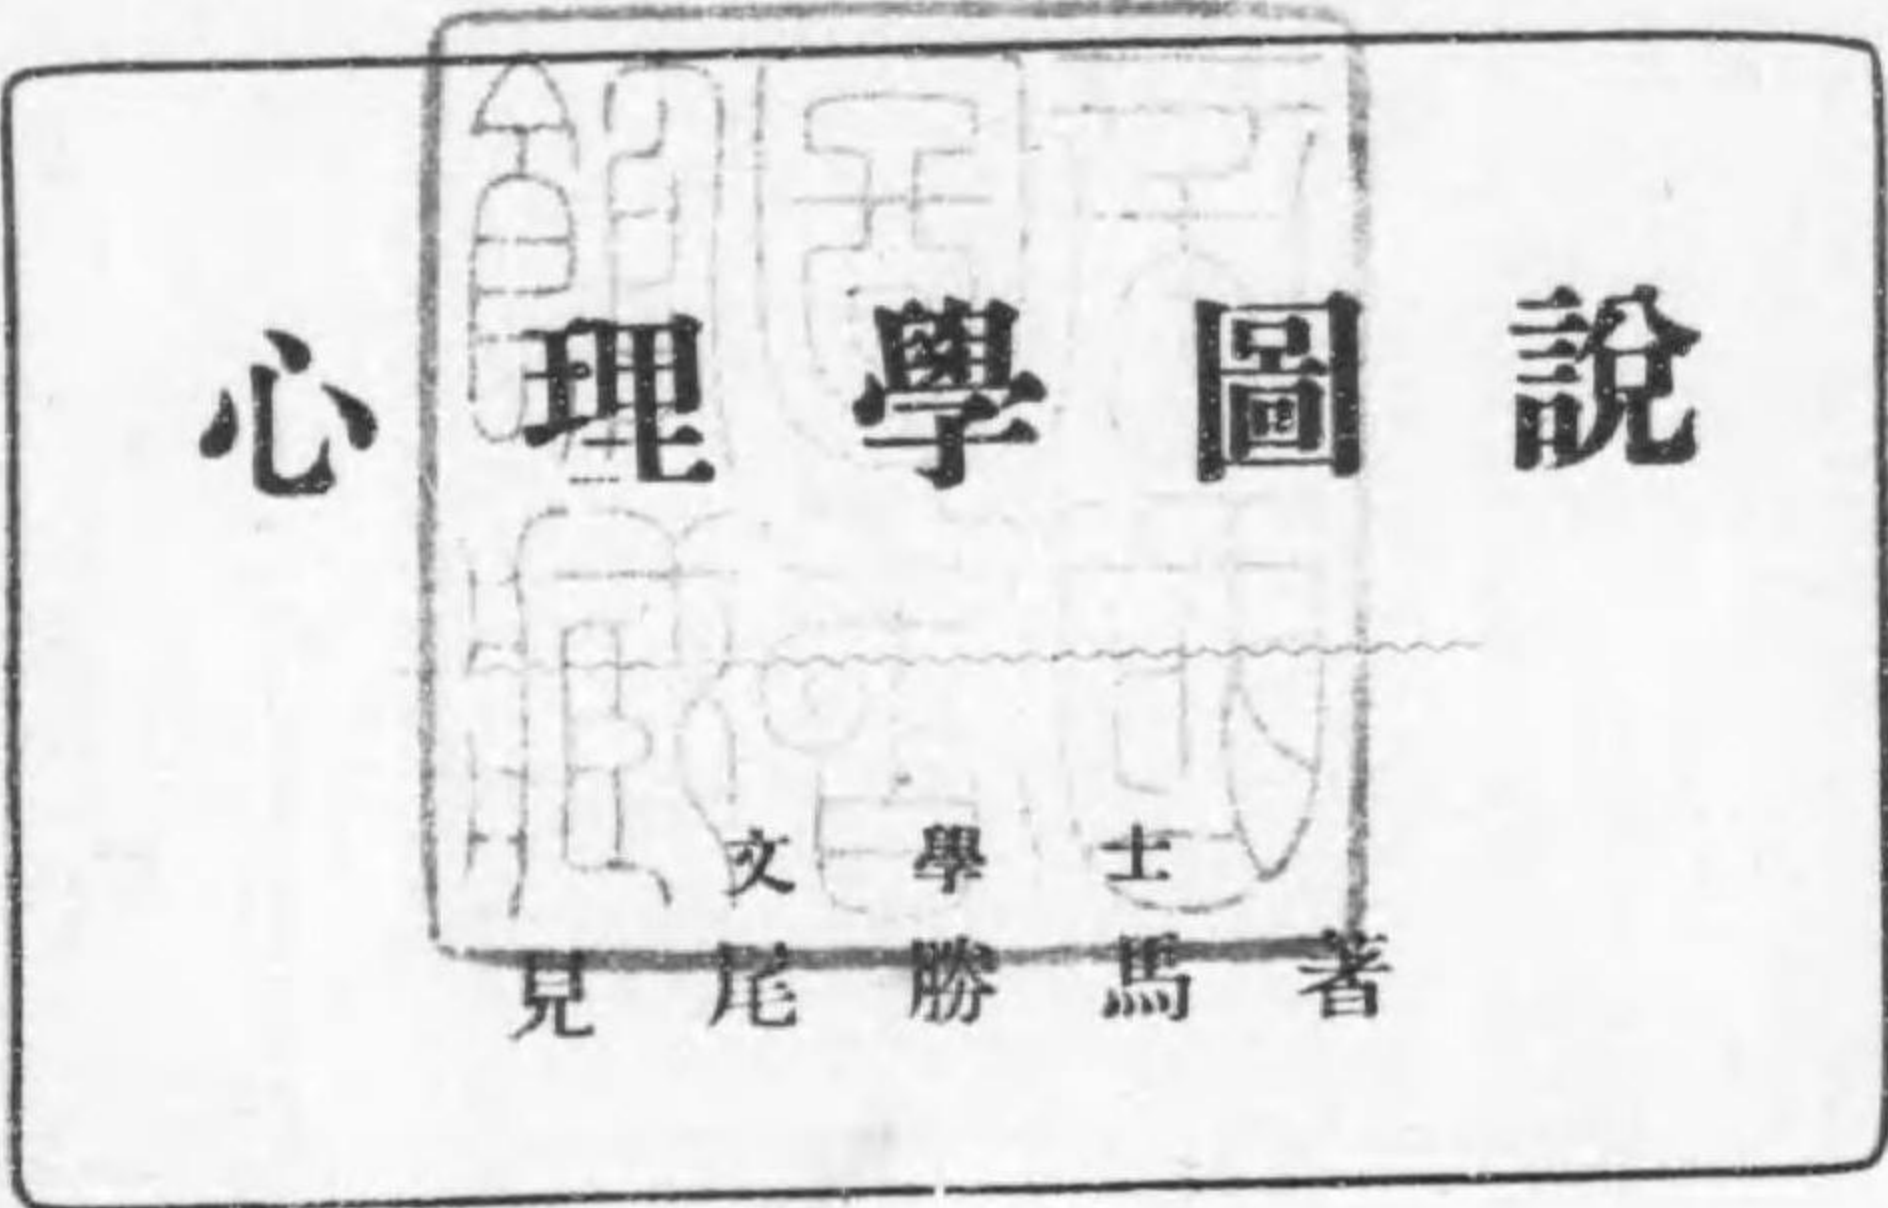 心理學圖說
文學士
見尾勝馬著